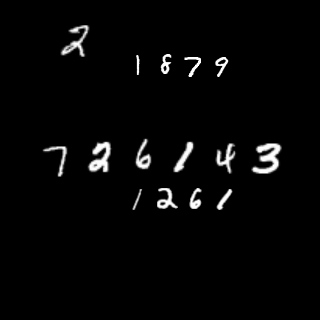 2
1879
726143
1261